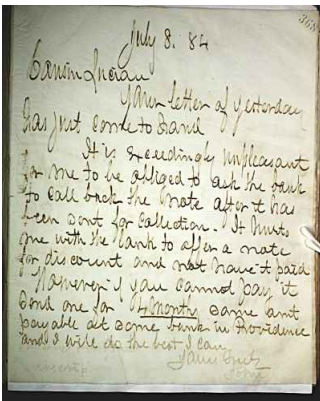 368
July 8. 84
Cousin Lucian
Your letter of yesterday
has just come to hand
It is exceedingly unpleasant
for me to be obliged to ask the bank
to call back the note after it has
been sent for collection. It hurts
me with the bank to offer a note
for discount and not have't paid
However if you cannot pay it
send one for 4 months same am't
payable at same bank in Providence
and I will do the best I can
Yours truly